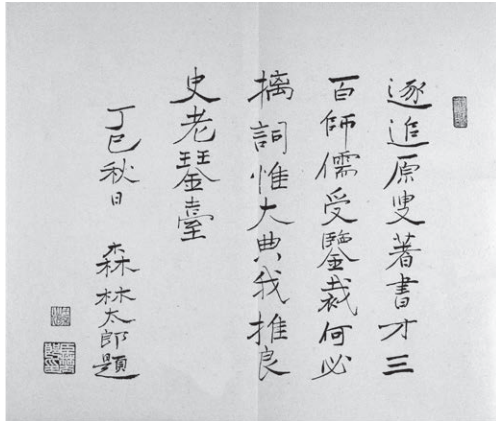 逐追原叟著書才三
百師儒受鑒裁何必
摛詞惟大典我推良
史老琴臺
丁巳秋日 森林太郎題